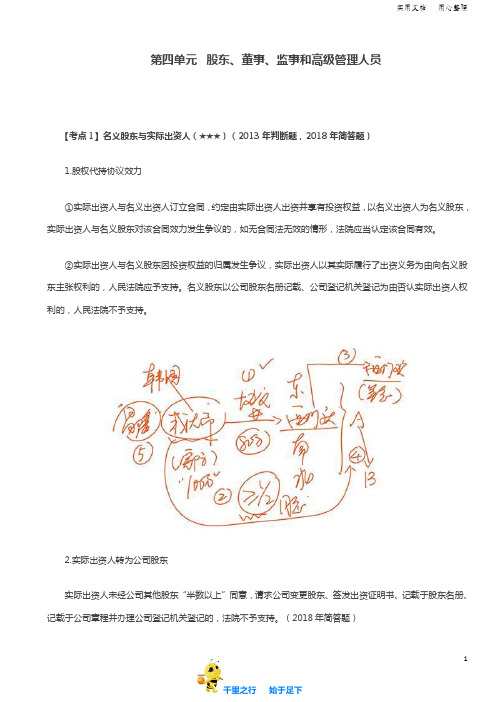 实用文档 用心整理
第四单元 股东、董事、监事和高级管理人员
【考点1】名义股东与实际出资人（★★★）（2013年判断题，2018年简答题）
1.股权代持协议效力
①实际出资人与名义出资人订立合同，约定由实际出资人出资并享有投资权益，以名义出资人为名义股东，
实际出资人与名义股东对该合同效力发生争议的，如无合同法无效的情形，法院应当认定该合同有效。
②实际出资人与名义股东因投资权益的归属发生争议，实际出资人以其实际履行了出资义务为由向名义股
东主张权利的，人民法院应予支持。名义股东以公司股东名册记载、公司登记机关登记为由否认实际出资人权
利的，人民法院不予支持。
③
①
韩国
东
协议
西门庆
⑤
800
南
A
④
②
≥1/2
13
2.实际出资人转为公司股东
实际出资人未经公司其他股东“半数以上”同意，请求公司变更股东、签发出资证明书、记载于股东名册、
记载于公司章程并办理公司登记机关登记的，法院不予支持。（2018年简答题）
1
千里之行 始于足下